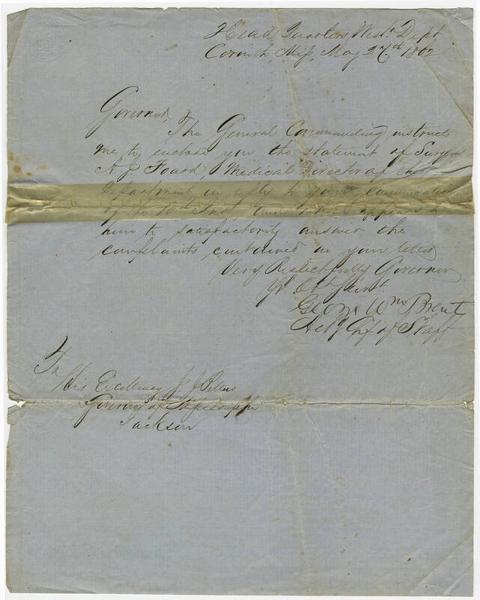 Head Quarters West. Dept
Corinth Miss, May 27th 1862
Governor,
The General Commanding instructs
me to enclose you the statement of Surgeon
A. J. Foard, Medical Director of this
Department in reply to your communication
of
him to satisfactorily answer the
complaints contained in your letter
Very Respectfully Governor
Yr Obt Servt
George Wm Brent
Act'g Chf of Staff
To
His Excellency J. J. Pettus
Governor of Mississippi
Jackson